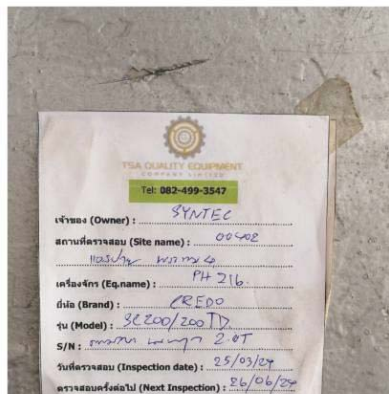 TSA QUALITY EQUIPMENT
COMPANY LIMITED
Tel: 082-499-3547
เจ้าของ (Owner) : SYNTEC
สถานที่ตรวจสอบ (Site name) : 00402
พระราม 4
เครื่องจักร (Eq.name) : PH 216.
ยี่ห้อ (Brand) : CREDO
รุ่น (Model) : SC200/200 TD
S/N : 2.0T
วันที่ตรวจสอบ (Inspection date) : 25/03/24
ตรวจสอบครั้งต่อไป (Next Inspection) : 26/06/24